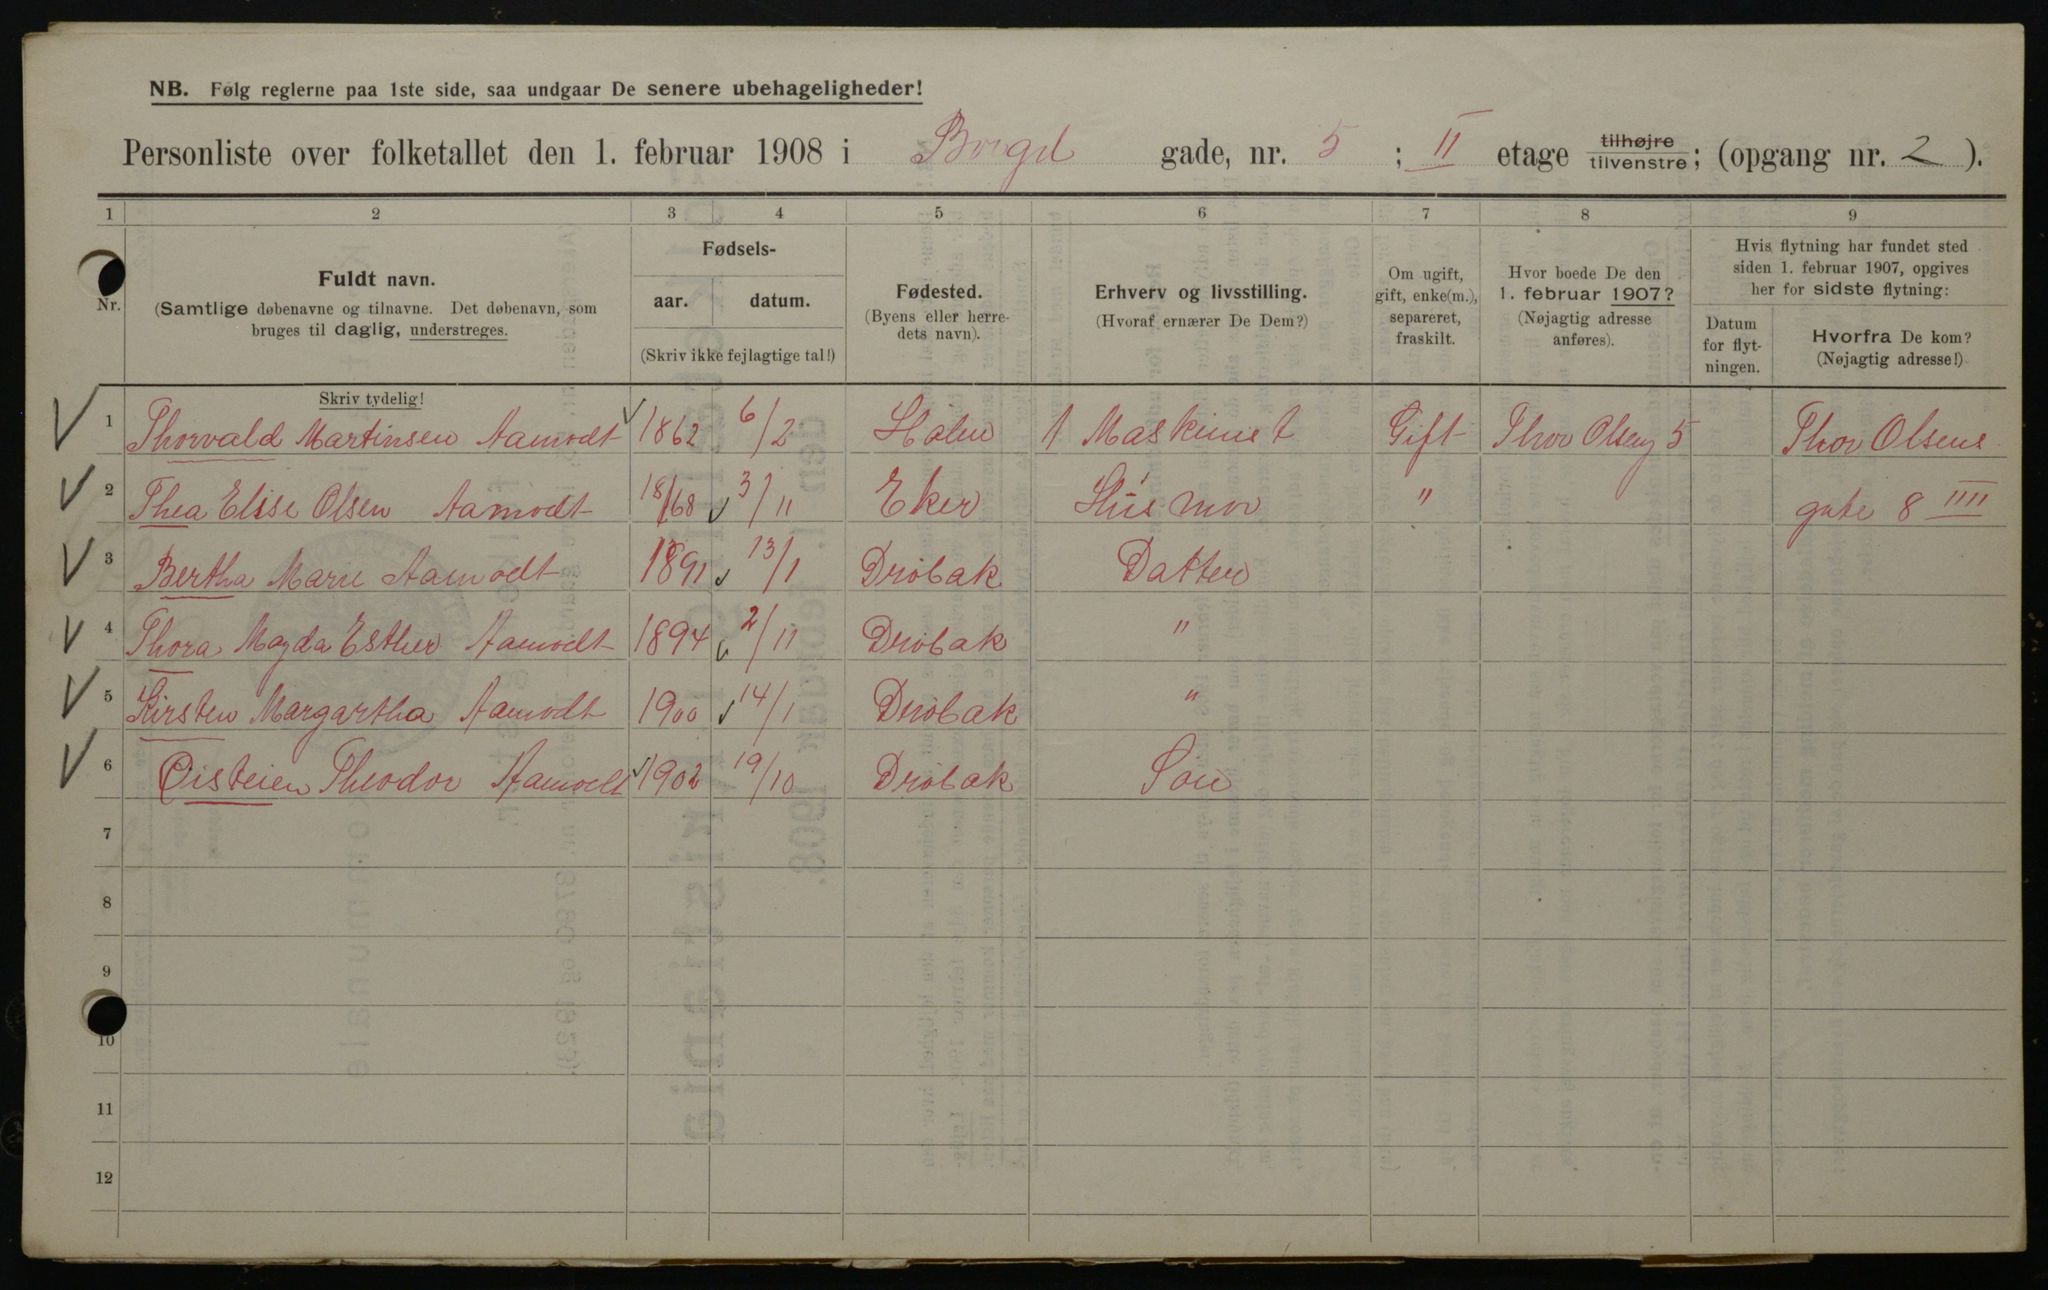 NB. Følg reglerne paa 1ste side, saa undgaar De senere ubehageligheder!
Personliste over folketallet den 1. februar 1908 i gade, nr. 5 ; II etage tilhøjre tilvenstre; (opgang nr. 2 ).
1 2 3 4 5 6 7 8 9
Nr. Fuldt navn. (Samtlige døbenavne og tilnavne. Det døbenavn, som bruges til daglig, understreges. Skriv tydelig!
Fødsels-
aar. datum.
(Skriv ikke fejlagtige tal!)
Fødested. (Byens eller herredets navn).
Erhverv og livsstilling. (Hvoraf ernærer De Dem?)
Om ugift, gift, enke(m.), separeret, fraskilt.
Hvor boede De den 1. februar 1907? (Nøjagtig adresse anføres).
Hvis flytning har fundet sted siden 1. februar 1907, opgives her for sidste flytning:
Datum for flytningen.
Hvorfra De kom? (Nøjagtig adresse!)
1 Thorvald Martinsen Aamodt 1862 6/2 Hølen Maskinist Gift Thor Olseng 5 Thor Olsens
2 Thea Elise Olsen Aamodt 18/68 3/11 Eker Husmor " gate 8 IIII
3 Bertha Marie Aamodt 1891 13/1 Drøbak Datter
4 Thora Magda Esther Aamodt 1894 2/11 Drøbak "
5 Kirsten Margartha Aamodt 1900 14/1 Drøbak "
6 Øisteien Theodor Aamodt 1902 19/10 Drøbak Søn
7
8
9
10
11
12